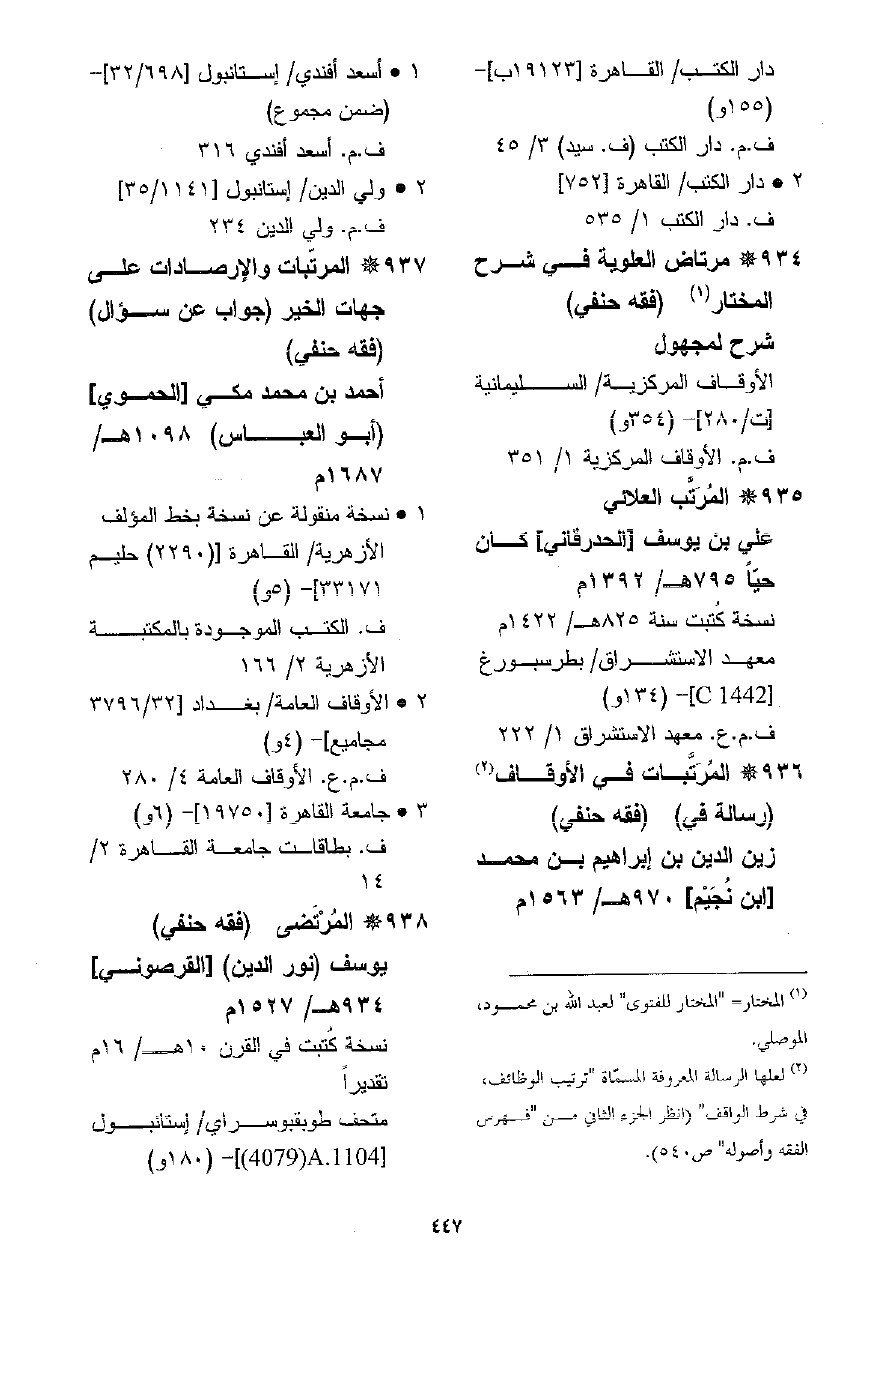 دار الكتب/ القاهرة [١٩١٢٣ب]-
(١٥٥و)
ف.م. دار الكتب (ف. سيد) ٣/ ٤٥
٢ • دار الكتب/ القاهرة [٧٥٢]
ف. دار الكتب ١/ ٥٣٥
٩٣٤* مرتاض العلوية في شرح
المختار(١) (فقه حنفي)
شرح لمجهول
الأوقاف المركزية/ السليمانية
[ت/٢٨٠]- (٣٥٤و)
ف.م. الأوقاف المركزية ١/ ٣٥١
٩٣٥* المُرَتَّب العلائي
علي بن يوسف [الحدرقاني] كان
حيّاً ٧٩٥هـ/ ١٣٩٢م
نسخة كُتبت سنة ٨٢٥هـ/ ١٤٢٢م
معهد الاستشراق/ بطرسبورغ
[C 1442]- (١٣٤و)
ف.م.ع. معهد الاستشراق ١/ ٢٢٢
٩٣٦* المُرَتَّبات في الأوقاف(٢)
(رسالة في) (فقه حنفي)
زين الدين بن إبراهيم بن محمد
[ابن نُجَيْم] ٩٧٠هـ/ ١٥٦٣م
(١) المختار= "المختار للفتوى" لعبد الله بن محمود،
الموصلي.
(٢) لعلها الرسالة المعروفة المسمّاة "ترتيب الوظائف،
في شرط الواقف" (انظر الجزء الثاني من "فهرس
الفقه وأصوله" ص٥٤٠).
١ • أسعد أفندي/ إستانبول [٣٢/٦٩٨]-
(ضمن مجموع)
ف.م. أسعد أفندي ٣١٦
٢ • ولي الدين/ إستانبول [٣٥/١١٤١]
ف.م. ولي الدين ٢٣٤
٩٣٧* المرتّبات والإرصادات على
جهات الخير (جواب عن سؤال)
(فقه حنفي)
أحمد بن محمد مكي [الحموي]
(أبو العباس) ١٠٩٨هـ/
١٦٨٧م
١ • نسخة منقولة عن نسخة بخط المؤلف
الأزهرية/ القاهرة [(٢٢٩٠) حليم
٣٣١٧١]- (٥و)
ف. الكتب الموجودة بالمكتبة
الأزهرية ٢/ ١٦٦
٢ • الأوقاف العامة/ بغداد [٣٧٩٦/٣٢
مجاميع]- (٤و)
ف.م.ع. الأوقاف العامة ٤/ ٢٨٠
٣ • جامعة القاهرة [١٩٧٥٠]- (٦و)
ف. بطاقات جامعة القاهرة ٢/
١٤
٩٣٨* المُرْتَضى (فقه حنفي)
يوسف (نور الدين) [القرصوني]
٩٣٤هـ/ ١٥٢٧م
نسخة كُتبت في القرن ١٠هـ/ ١٦م
تقديراً
متحف طوبقبوسراي/ إستانبول
[(4079)A.1104]- (١٨٠و)
٤٤٧